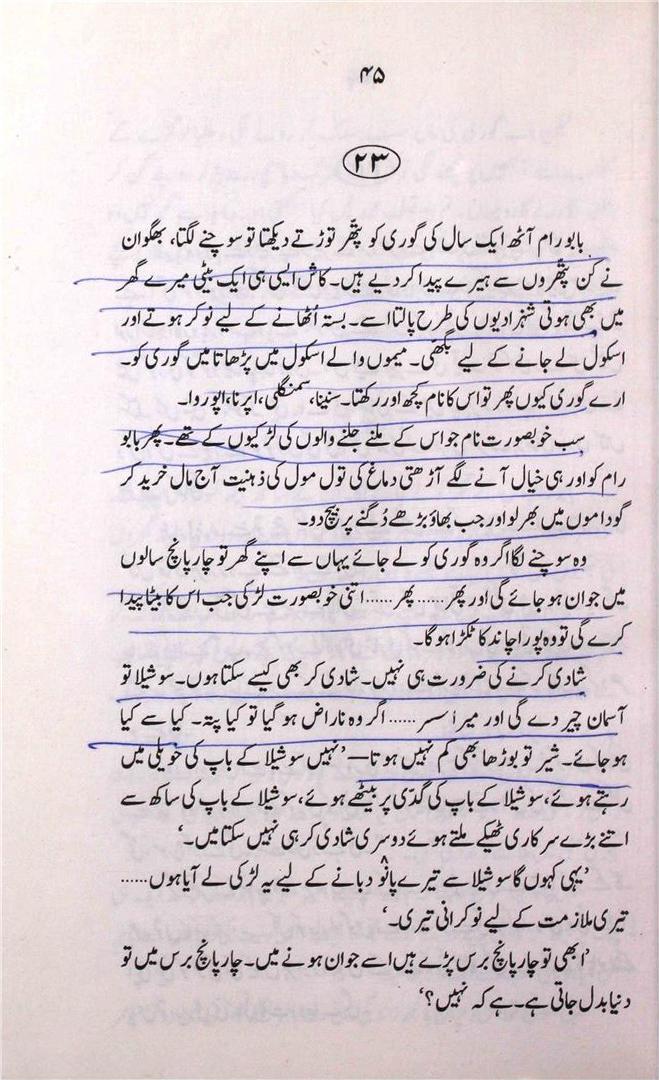 ۴۵
۲۳
بابو رام آٹھ ایک سال کی گوری کو پتھر توڑتے دیکھتا تو سوچنے لگتا، بھگوان
نے کن پتھروں سے ہیرے پیدا کر دیے ہیں۔ کاش ایسی ہی ایک بیٹی میرے گھر
میں بھی ہوتی شہزادیوں کی طرح پالتا اسے۔ بستہ اُٹھانے کے لیے نوکر ہوتے اور
اسکول لے جانے کے لیے بگھی۔ میموں والے اسکول میں پڑھاتا میں گوری کو۔
ارے گوری کیوں پھر تو اس کا نام کچھ اور رکھتا۔ سنینا، سمنگلی، اپرنا، اپوروا۔
سب خوبصورت نام جو اس کے ملنے جلنے والوں کی لڑکیوں کے تھے۔ پھر بابو
رام کو اور ہی خیال آنے لگے آڑھتی دماغ کی تول مول کی ذہنیت آج مال خرید کر
گوداموں میں بھر لو اور جب بھاؤ بڑھے دُگنے پر بیچ دو۔
وہ سوچنے لگا اگر وہ گوری کو لے جائے یہاں سے اپنے گھر تو چار پانچ سالوں
میں جوان ہو جائے گی اور پھر ...... پھر ...... اتنی خوبصورت لڑکی جب اس کا بیٹا پیدا
کرے گی تو وہ پورا چاند کا ٹکڑا ہوگا۔
شادی کرنے کی ضرورت ہی نہیں۔ شادی کر بھی کیسے سکتا ہوں۔ سوشیلا تو
آسمان چیر دے گی اور میرا سسر ...... اگر وہ ناراض ہو گیا تو کیا پتہ۔ کیا سے کیا
ہو جائے۔ شیر تو بوڑھا بھی کم نہیں ہوتا—’نہیں سوشیلا کے باپ کی حویلی میں
رہتے ہوئے، سوشیلا کے باپ کی گدّی پر بیٹھے ہوئے، سوشیلا کے باپ کی ساکھ سے
اتنے بڑے سرکاری ٹھیکے ملتے ہوئے دوسری شادی کر ہی نہیں سکتا میں۔‘
’یہی کہوں گا سوشیلا سے تیرے پانْو دبانے کے لیے یہ لڑکی لے آیا ہوں ......
تیری ملازمت کے لیے نوکرانی تیری۔‘
’ابھی تو چار پانچ برس پڑے ہیں اسے جوان ہونے میں۔ چار پانچ برس میں تو
دنیا بدل جاتی ہے۔ ہے کہ نہیں؟‘